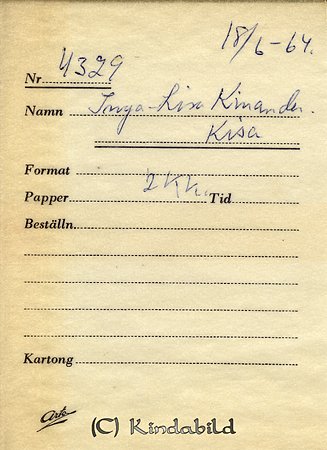 18/6-64.
Nr 4329
Namn Inga-Lisa Kinander.
Kisa
Format
Papper 2 Kh. Tid
Beställn
Kartong
Arke
(C) Kindabild